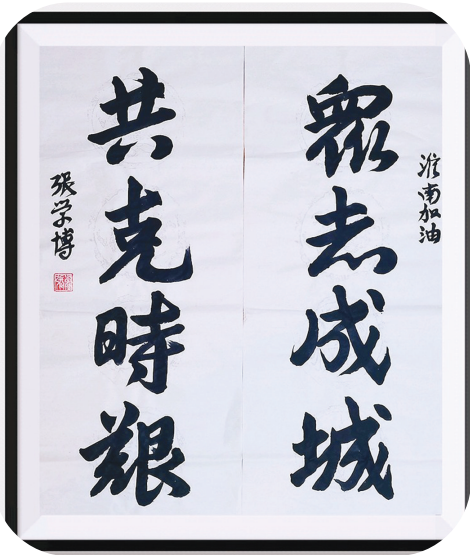 淮南加油
眾志成城
共克時艱
張学博